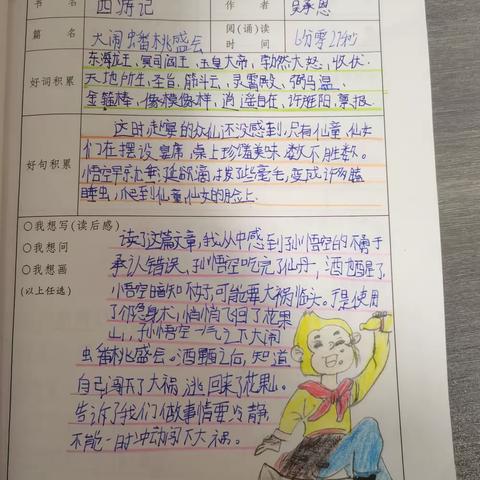 书 名 西游记 作 者 吴承恩
篇 名 大闹蟠桃盛会 阅(诵)读时间 6分零27秒
好词积累
东海龙王、冥司阎王、玉皇大帝、勃然大怒、收伏、
天地所生、圣旨、筋斗云、灵霄殿、弼马温、
金箍棒、像模像样、逍遥自在、许旌阳、禀报
好句积累
这时赴宴的众仙还没感到,只有仙童,仙女
们在摆设皇席,桌上珍馐美味,数不胜数。
悟空早就垂涎欲滴,拔些毫毛,变成许多瞌
睡虫,爬到仙童,仙女的脸上.
○我想写(读后感)
○我想问
○我想画
(以上任选)
读了这篇文章,我从中感到孙悟空的不勇于
承认错误,孙悟空吃完了仙丹,酒醒了
小悟空暗知不好,可能要大祸临头。于是使用
了隐身术,悄悄飞回了花果
山,孙悟空一气之下大闹
蟠桃盛会。酒醒之后,知道
自己闯下了大祸逃回来了花果山。
告诉了我们做事情要冷静,
不能一时冲动闯下大祸。